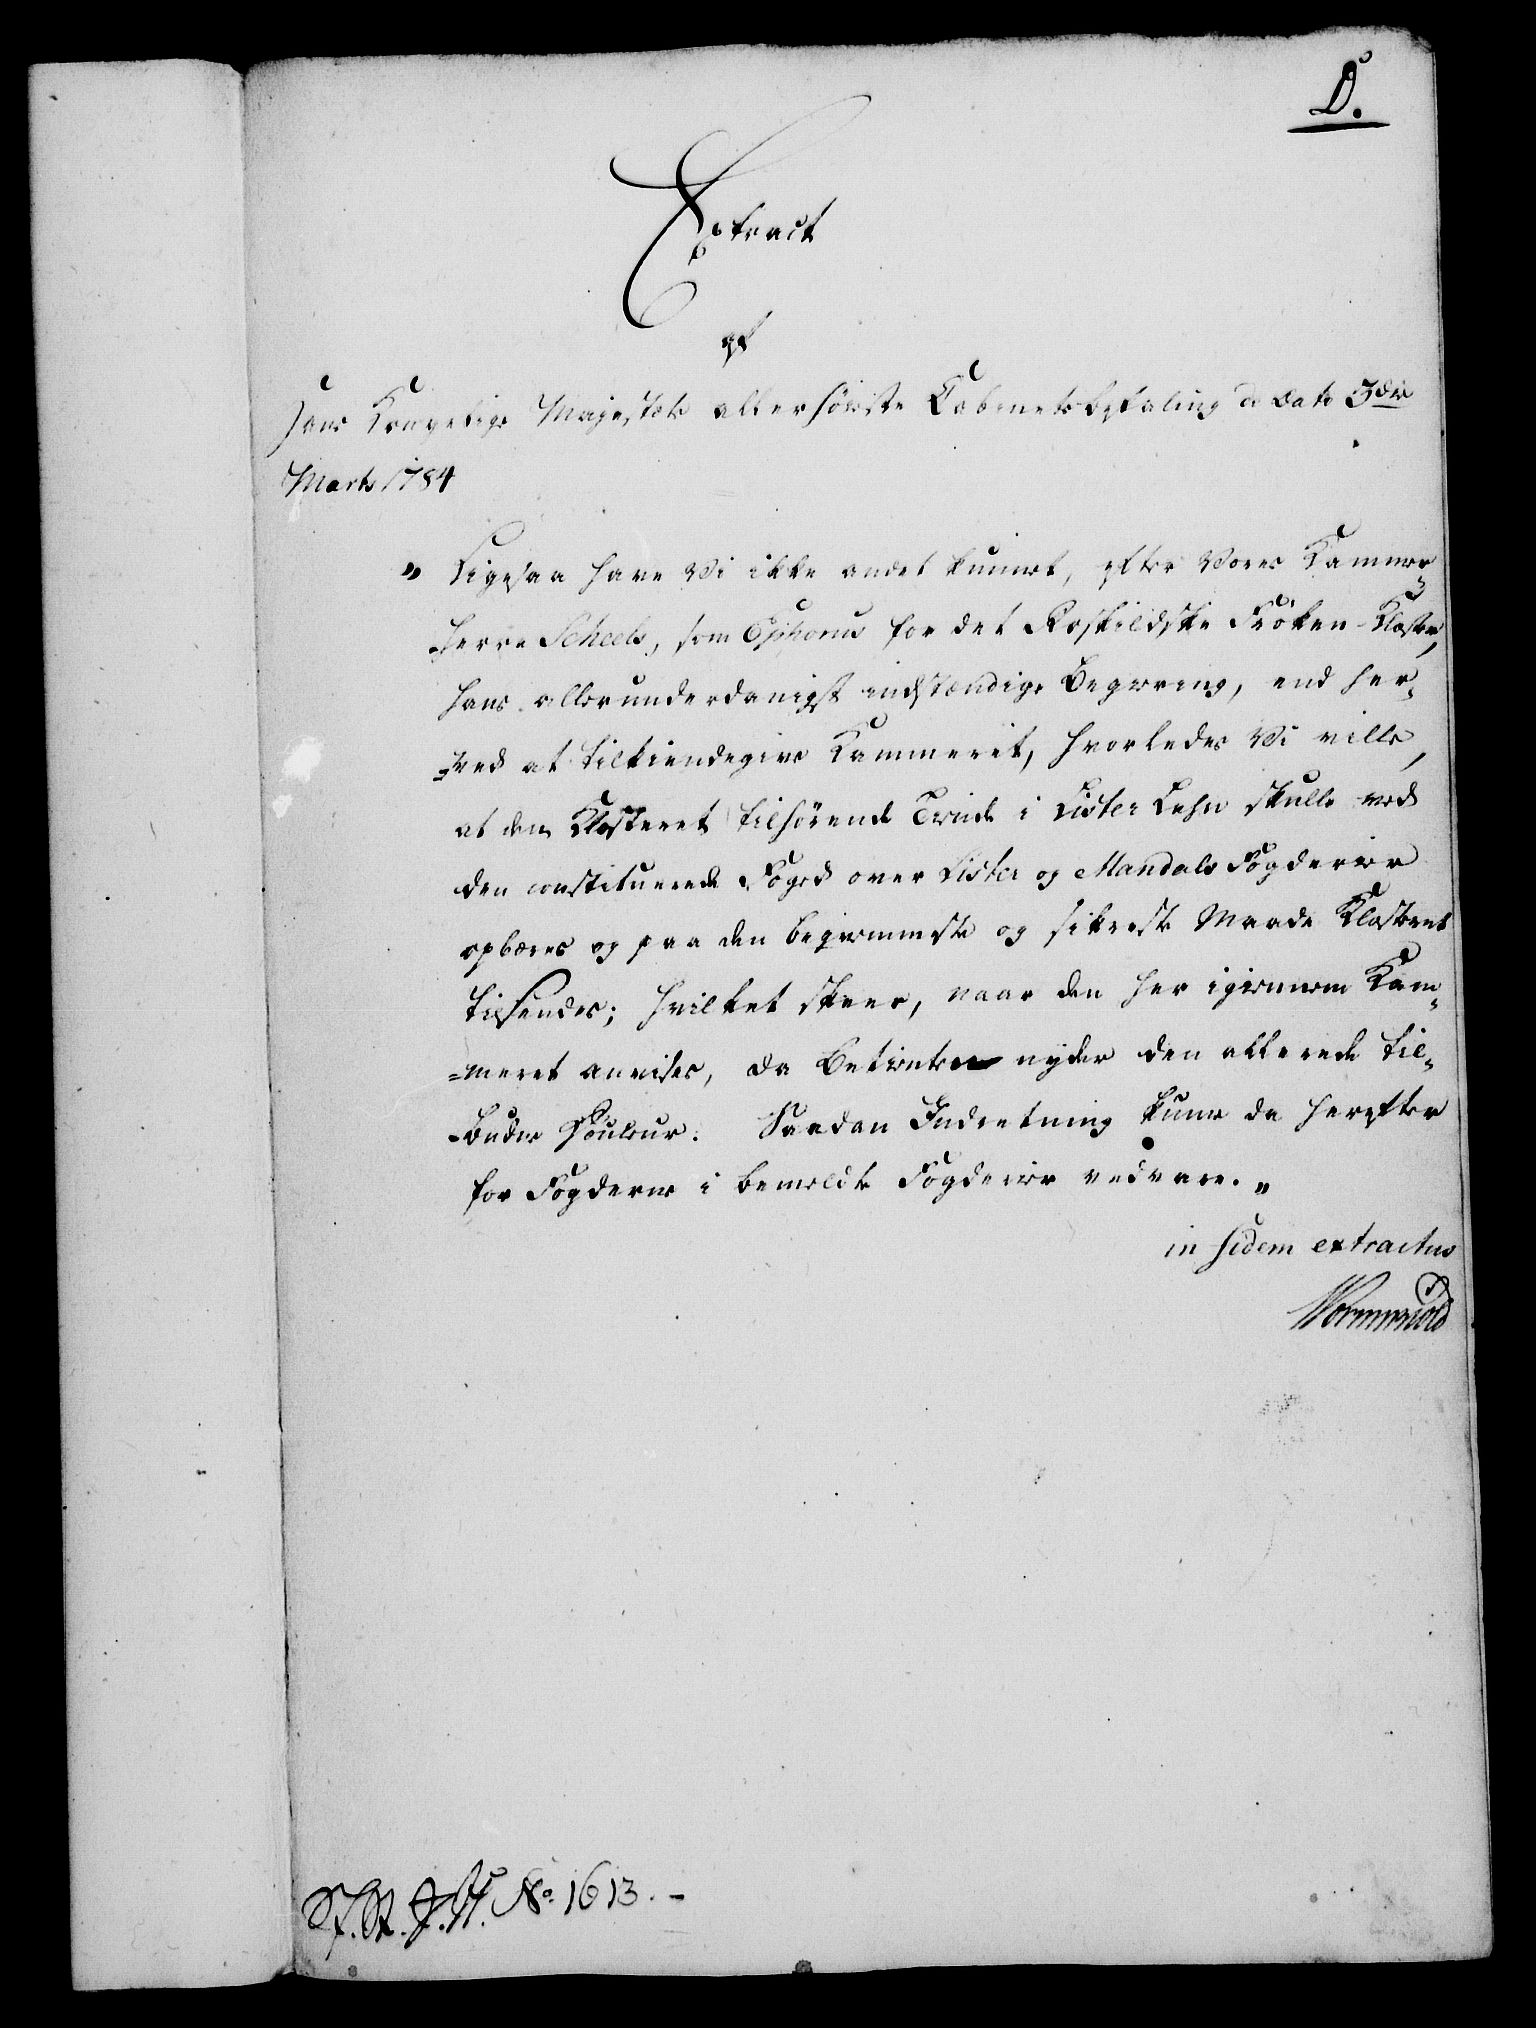 D.
Extract
af
Hans Kongelige Majestæts allerhøieste Cabinetsbefaling de Dato 3die
Marts 1784
„ Ligesaa have Vi ikke andet kunnet, efter Vores Kammer-
-herre Scheels, som Ephorus for det Roskildske Frøken-Kloster,
hans allerunderdanigst indstændige Begiering, end her-
-ved at tilkiendegive Kammeret, hvorledes Vi ville,
at den Klosteret tilhørende Tiende i Lister Lehn skulle ved
den constituerede Foged over Lister og Mandals Fogderier
opbæres og paa den beqvemmeste og sikreste Maade Klosteret
tilsendes; hvilket skeer, naar den her igiennem Kam-
-meret anvises, da Betienten nyder den allerede til-
-budne Douceur. Saadan Indretning kunne da herefter
for Fogderne i bemeldte Fogderier vedvare. „
in fidem extractus
Wormskiold
No. 1613. -